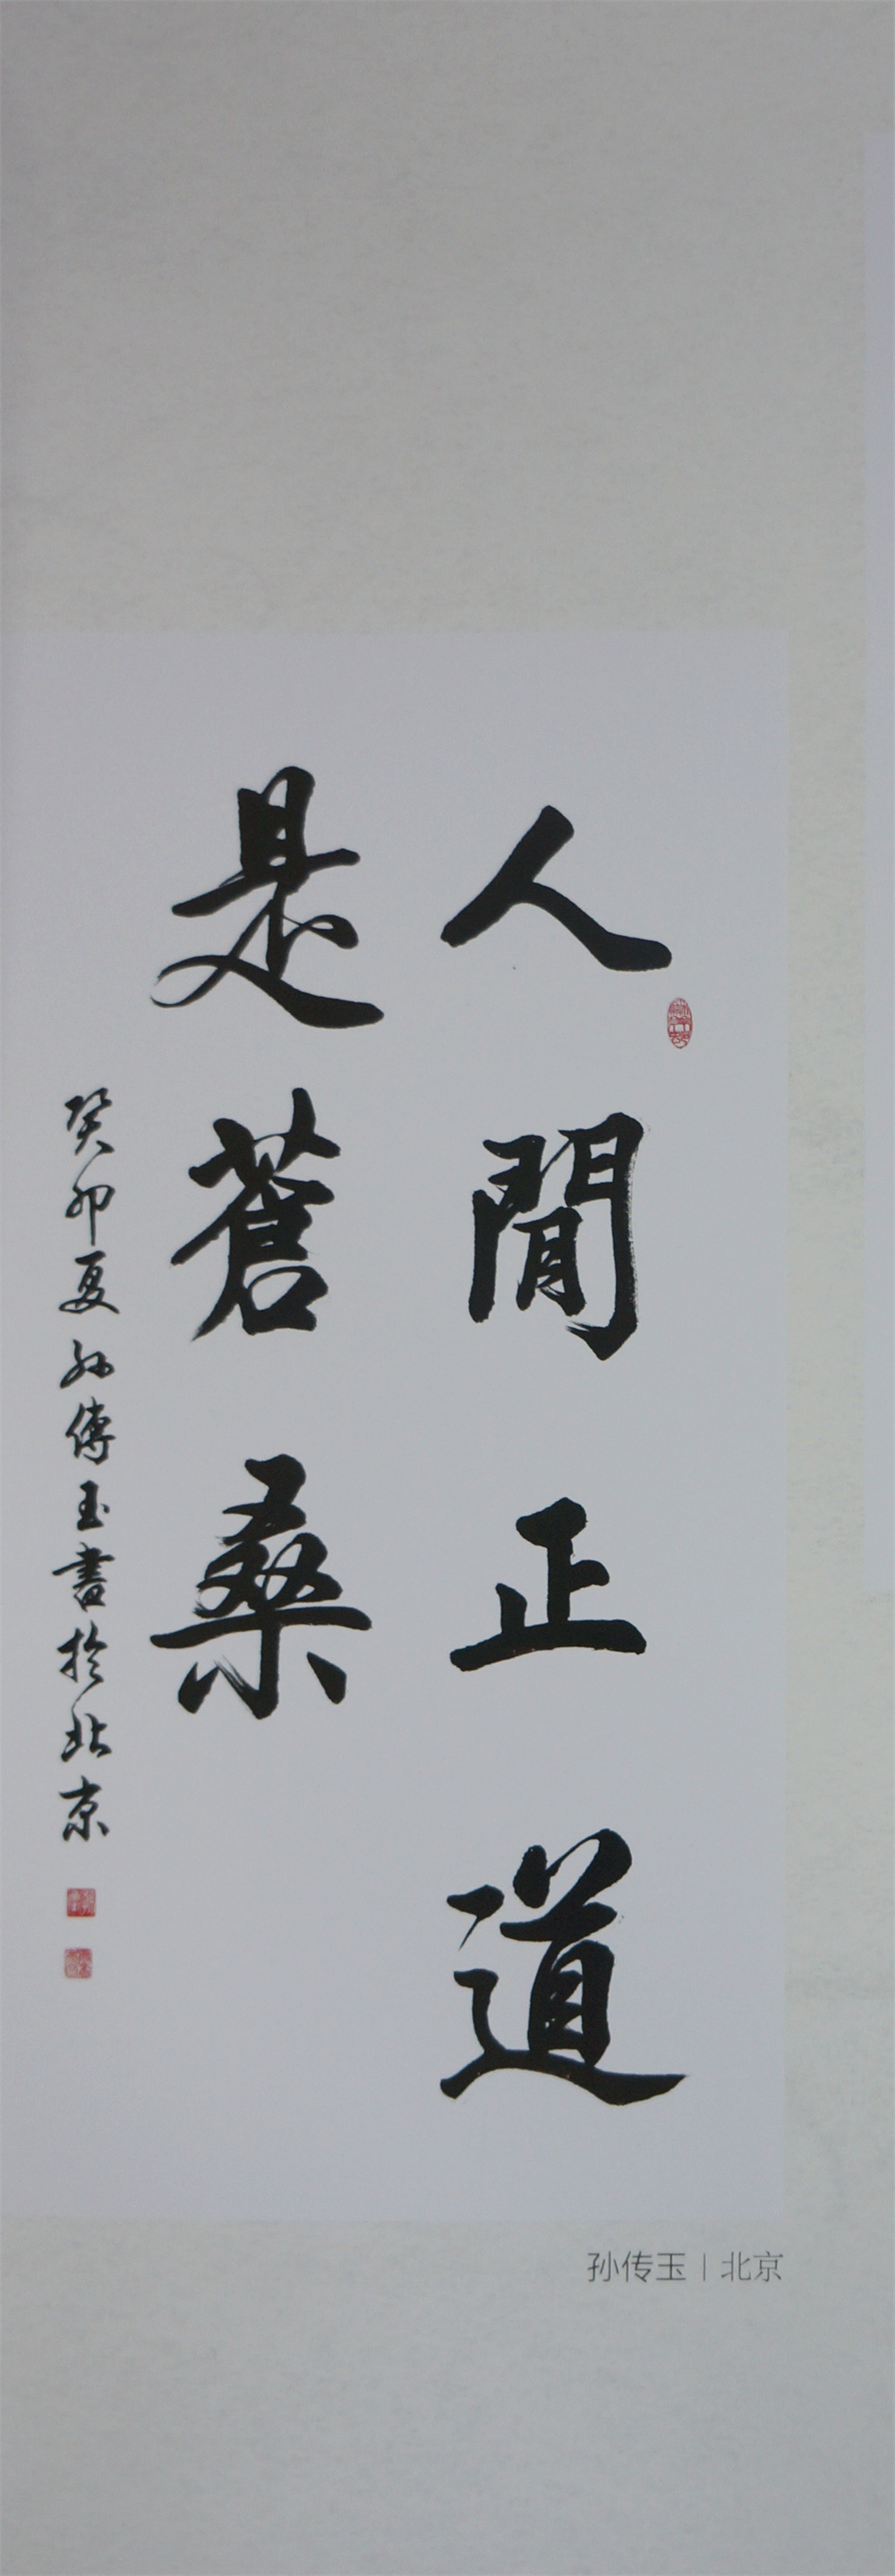 人間正道
是蒼桑
癸卯夏孙傳玉書於北京
孙传玉 | 北京